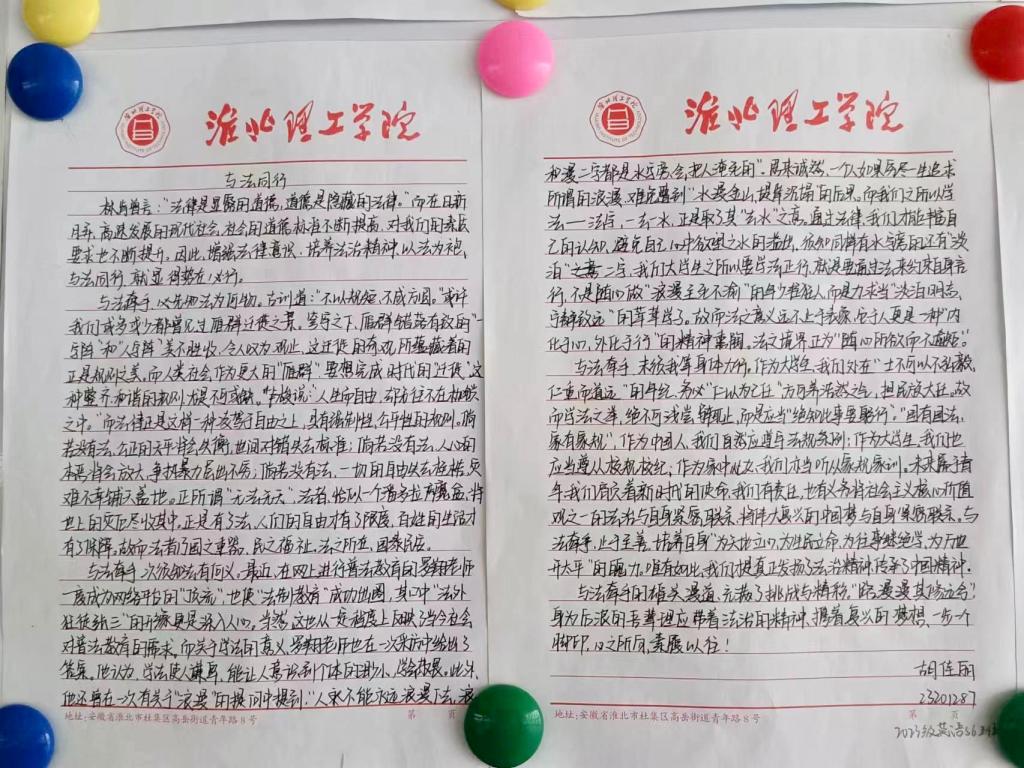 淮北理工学院
与法同行
林肯曾言:"法律是显露的道德,道德是隐藏的法律。"而在日新
月异、高速发展的现代社会,社会的道德标准不断提高,对我们的素质
要求也不断提升。因此,增强法律意识,培养法治精神,以法为袍,
与法同行,就显得势在必行。
与法牵手,必先知法为何物。古训道:"不以规矩,不成方圆。"或许
我们或多或少都曾见过雁群迁徙之景。寥穹之下,雁群错落有致的"一
字阵"和"人字阵"美不胜收,令人叹为观止,这迁徙的奇观所蕴藏着的
正是规则之美,而人类社会作为更大的"雁群",要想完成时代的迁徙,这
种整齐和谐的规则大是不可或缺。卢梭说:"人生而自由,却无往不在枷锁
之中。"而法律正是这样一种凌驾于自由之上,具有强制性、公平性的规则。倘
若没有法,公正的天平将会失衡,世间对错失去标准;倘若没有法,人心的
本恶将会放大,争执暴力层出不穷;倘若没有法,一切的自由失去桎梏,灾
难不幸铺天盖地。正所谓"无法无天",法者,恰似一个潘多拉魔盒,将
世上的灾厄尽收其中。正是有了法,人们的自由才有了限度,百姓的生活才
有了保障。故而法者乃国之重器,民之福祉,法之所在,国泰民安。
与法牵手,次很知法有何义。最近,在网上进行普法教育的罗翔老师
一度成为网络平台的"顶流",也使"法制教育"成功出圈,其口中"法外
狂徒张三"的形象更是深入人心。当然,这也从一定程度上反映了当今社会
对普法教育的需求。而关于学法的意义,罗翔老师也在一次采访中给出了
答案。他认为,学法使人谦卑,能让人意识到个体的渺小,学会敬畏。此外,
他还曾在一次有关于"浪漫"的提问中提到:"人永不能永远浪漫下去,浪
地址:安徽省淮北市杜集区高岳街道青年路8号 第 页
淮北理工学院
和漫二字都是水字旁,会把人淹死的"。居来诚然,一个人如果穷尽一生追求
所谓的浪漫,难免酿到"水漫金山,堤岸沉塌"的后果。而我们之所以学
法——法字,一去一水,正是取了其"去水"之意。通过法律,我们才能丰富自
己的认知,避免自己心中欲望之水的溢出。很知同样有水字旁的还有"淡
泊"二字,我们大学生之所以要学法正行,就是要通过法来约束自身言
行,不是随心做"浪漫至死不渝"的年少轻狂人,而是力求当"淡泊明志、
宁静致远"的莘莘学子。故而法之意义远不止于表象,它于人更是一种"内
化于心,外化于行"的精神素陶。法之境界正为"随心所欲而不逾矩"。
与法牵手,末须我等身体力行。作为大学生,我们处在"士不可以不弘毅,
任重而道远"的年纪,务必"仁以为己任",方可养浩然之气,担民族大任。故
而学法之举,绝不可浅尝辄止,而是应当"绝知此事要躬行"。"国有国法,
家有家规",作为中国人,我们自然应遵守法规条例;作为大学生,我们也
应当遵从校规校纪;作为家中儿女,我们亦当听从家规家训。未来属于青
年,我们肩负着新时代的使命,我们有责任,也有义务将社会主义核心价值
观之一的法治与自身紧密联系,将伟大复兴的中国梦与自身紧密联系。与
法牵手,止于至善,培养自身"为天地立心,为生民立命,为往圣继绝学,为万世
开太平"的魄力。唯有如此,我们想真正发扬了法治精神,传承了中国精神。
与法牵手的雄关漫道,充满了挑战与精彩,"路漫漫其修远兮",
身为后浪的吾辈理应带着法治的精神,携着复兴的梦想,一步一个
脚印,心之所向,素履以往!
胡佳丽
23201287
2023级英语S6班
地址:安徽省淮北市杜集区高岳街道青年路8号 第 页